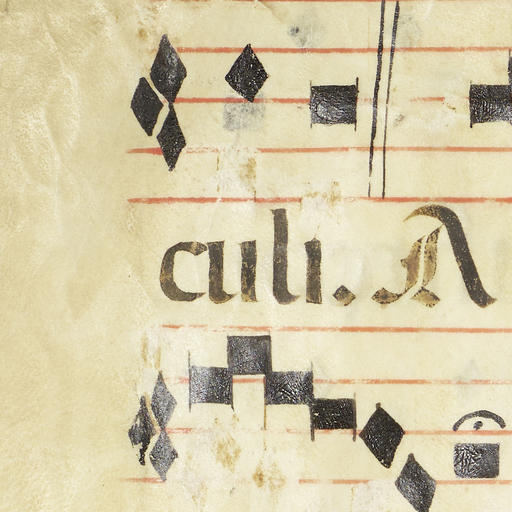 culi. A